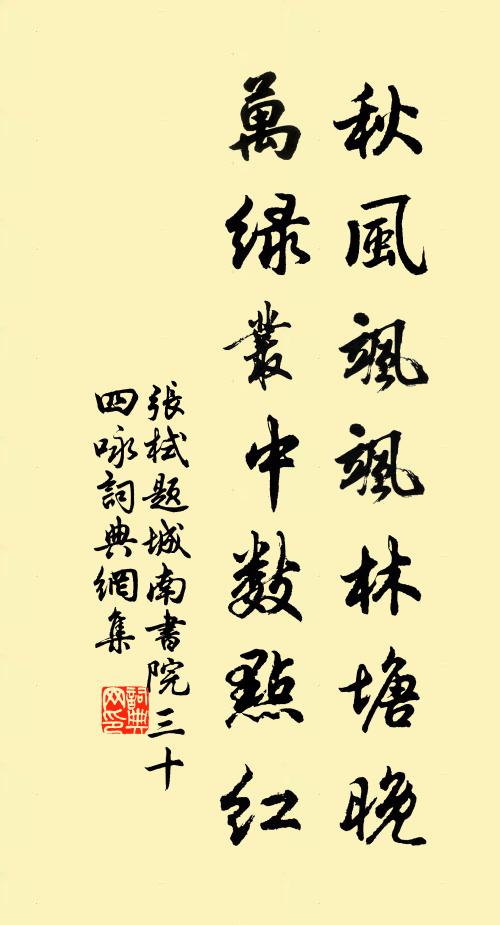 秋風颯颯林塘晚
萬緑叢中数點紅
張栻題城南書院三十
四咏詞典網集
詞典网印